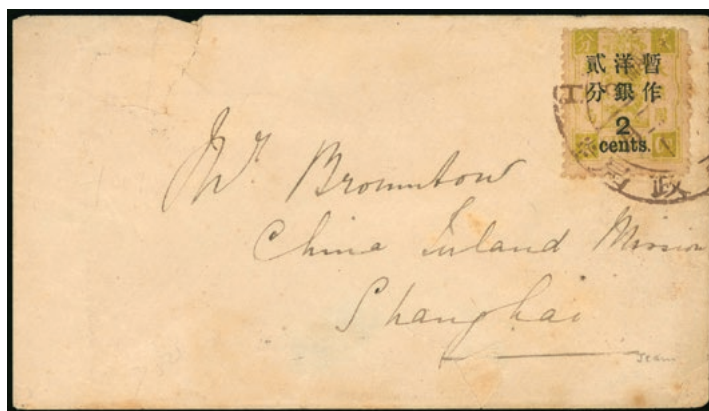 暫作
洋銀
貳分
2
cents.
政
Mr. Broumton
China Inland Mission
Shanghai